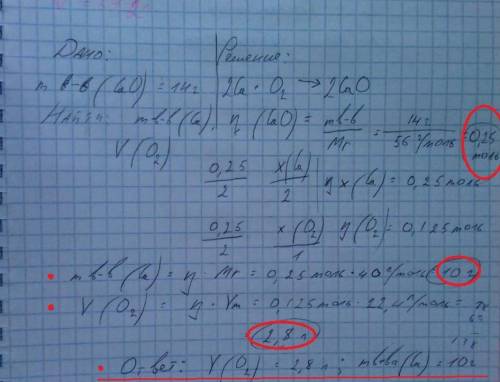 Дано:
Решение:
m в-в (CaO) = 14г
2Ca + O₂ → 2CaO
Найти: m в-в (Ca),
V (O₂)
η (CaO) = mв-в / Mr = 14г / 56 г/моль = 0,25 моль
0,25 / 2 x(Ca) / 2 η x (Ca) = 0,25 моль
0,25 / 2 x (O₂) / 1 η (O₂) = 0,125 моль
• m в-в (Ca) = η · Mr = 0,25 моль · 40 г/моль = 10 г
• V (O₂) = η · Vm = 0,125 моль · 22,4 л/моль =
2,8 л
• Ответ: V (O₂) = 2,8 л ; mв-ва (Ca) = 10г